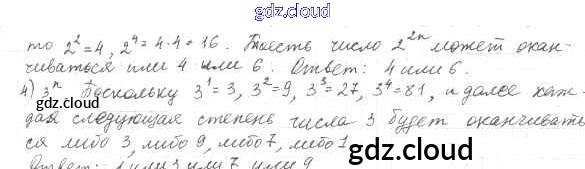 gdz.cloud
то 2² = 4, 2⁴ = 4·4 = 16. Тоесть число 2²ⁿ может окан-
чиваться или 4 или 6. Ответ: 4 или 6.
4) 3ⁿ Поскольку 3¹ = 3, 3² = 9, 3³ = 27, 3⁴ = 81, и далее каж-
gdz.cloud
дая следующая степень числа 3 будет оканчивать
ся либо 3, либо 9, либо 7, либо 1
gdz.cloud
Ответ: 1 или 3 или 7 или 9